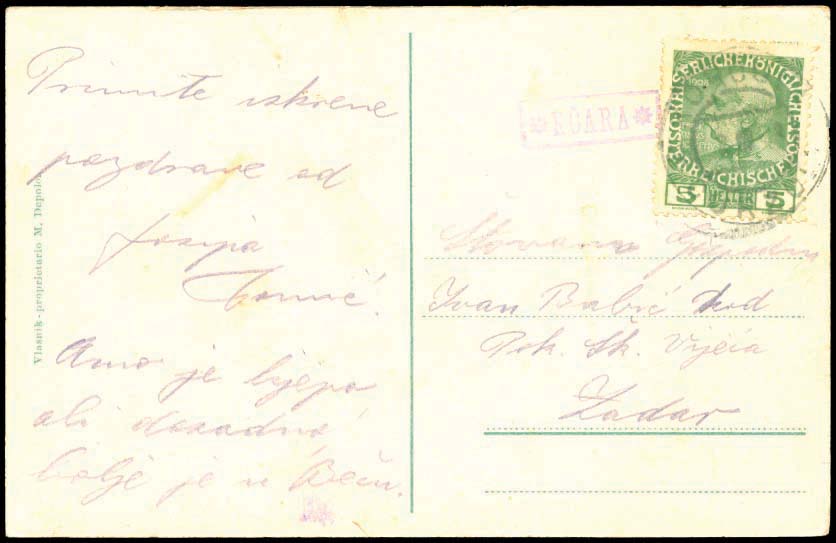 Primite iskrene
pozdrave od
Josipa
Tomić.
Amo je lijepo
ali dosadno,
bolje je u Beču.
Vlasnik-proprietario M. Depolo
*ROARA*
KAISERLICHE KÖNIGLICHE ÖSTERREICHISCHE POST
1908
5 HELLER 5
Štovanu Gospodinu
Ivan Babić kod
Pok. Šk. Vijeća
Zadar